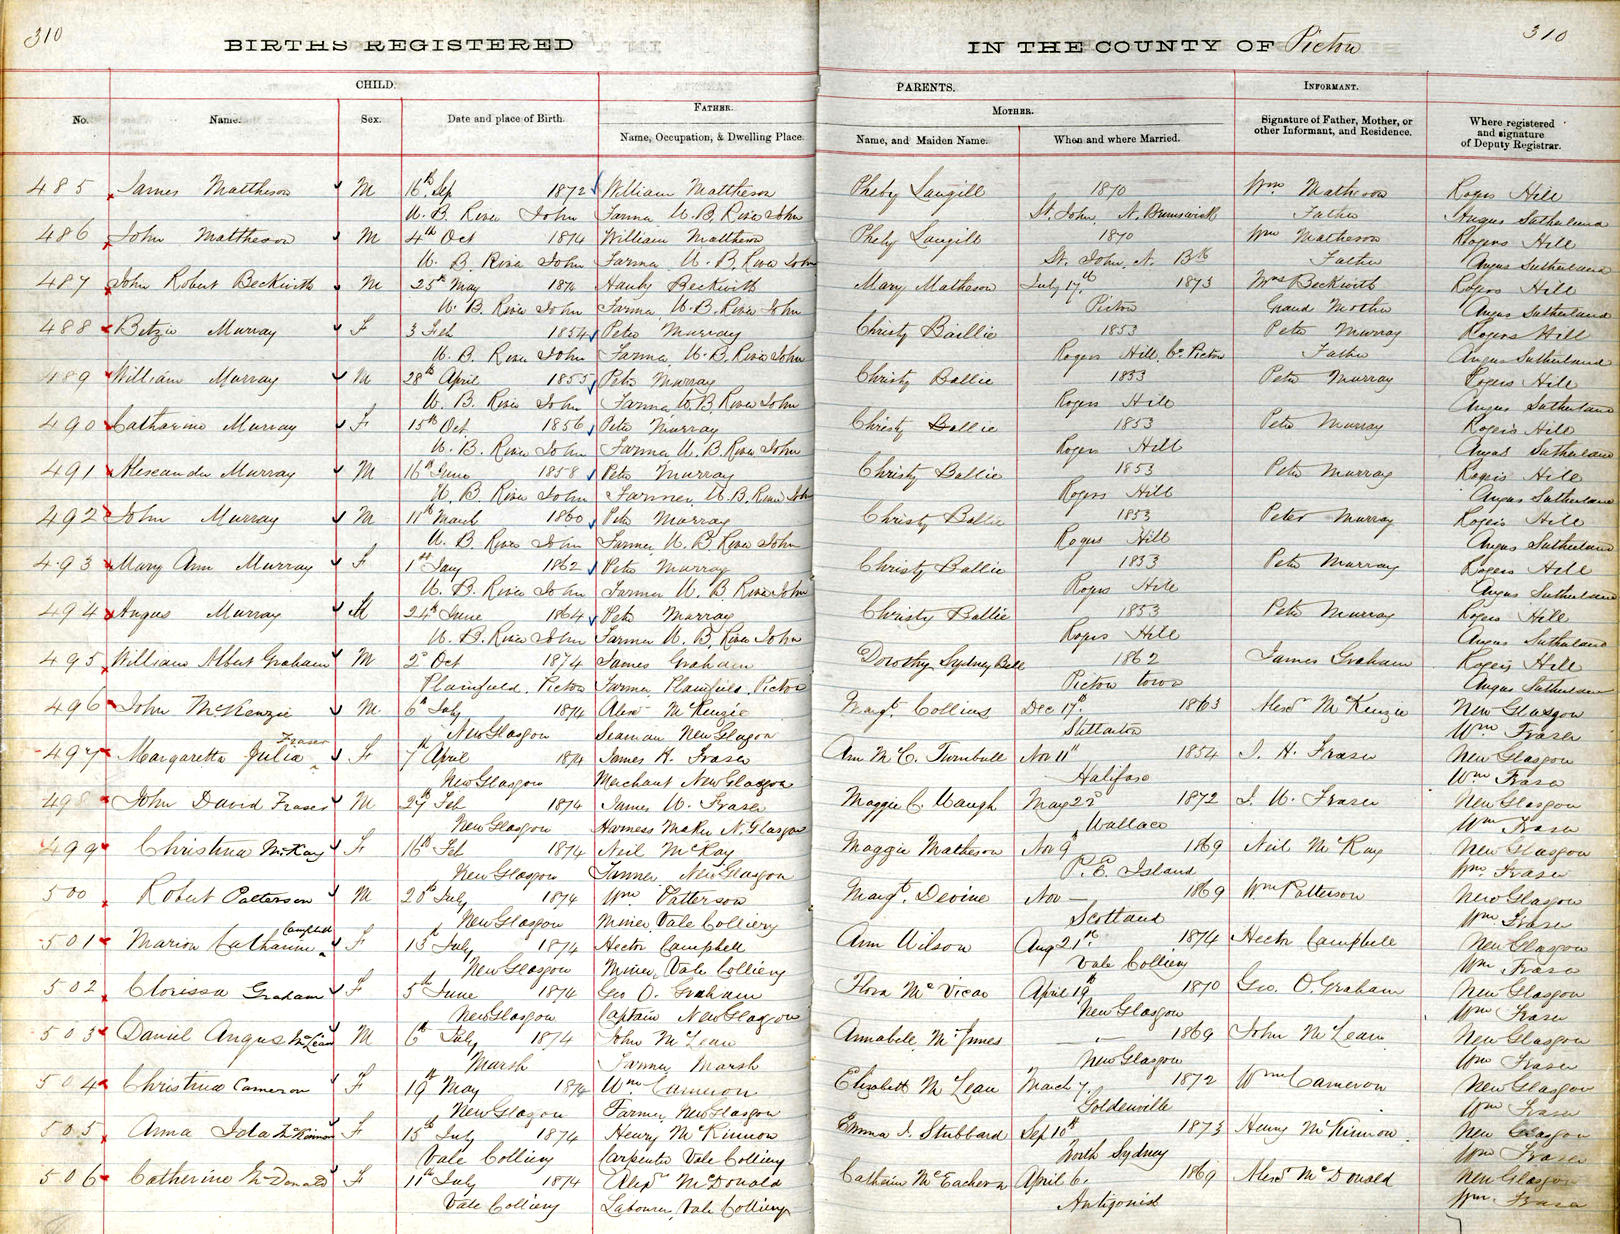 310
BIRTHS REGISTERED
IN THE COUNTY OF Pictou
310
CHILD.
PARENTS.
INFORMANT.
FATHER.
MOTHER.
No.
Name.
Sex.
Date and place of Birth.
Name, Occupation, & Dwelling Place.
Name, and Maiden Name.
When and where Married.
Signature of Father, Mother, or
other Informant, and Residence.
Where registered
and signature
of Deputy Registrar.
485 James Mattheson M 16th Sep 1872 William Mattheson Pheby Langill 1870 Wm Matheson Rogers Hill
W. B. River John Farmer W. B. River John St. John, N. Brunswick Father Angus Sutherland
486 John Mattheson M 4th Oct 1874 William Mattheson Pheby Langill 1870 Wm Matheson Rogers Hill
W. B. River John Farmer W. B. River John St. John, N. Bk Father Angus Sutherland
487 John Robert Beckwith M 25th May 1874 Beckwith Mary Matheson July 17th 1873 Mrs Beckwith Rogers Hill
W. B. River John Farmer W. B. River John Pictou Grand Mother Angus Sutherland
488 Betzie Murray F 3 Feb 1854 Peter Murray Christy Baillie 1853 Peter Murray Rogers Hill
W. B. River John Farmer W. B. River John Rogers Hill, Co. Pictou Father Angus Sutherland
489 William Murray M 28th April 1855 Peter Murray Christy Ballie 1853 Peter Murray Rogers Hill
W. B. River John Farmer W. B. River John Rogers Hill Angus Sutherland
490 Catharine Murray F 15th Oct 1856 Peter Murray Christy Ballie 1853 Peter Murray Rogers Hill
W. B. River John Farmer W. B. River John Rogers Hill Angus Sutherland
491 Alexander Murray M 16th June 1858 Peter Murray Christy Ballie 1853 Peter Murray Rogers Hill
W. B. River John Farmer W. B. River John Rogers Hill Angus Sutherland
492 John Murray M 11th March 1860 Peter Murray Christy Ballie 1853 Peter Murray Rogers Hill
W. B. River John Farmer W. B. River John Rogers Hill Angus Sutherland
493 Mary Ann Murray F 1st Jany 1862 Peter Murray Christy Ballie 1853 Peter Murray Rogers Hill
W. B. River John Farmer W. B. River John Rogers Hill Angus Sutherland
494 Angus Murray M 24th June 1864 Peter Murray Christy Ballie 1853 Peter Murray Rogers Hill
W. B. River John Farmer W. B. River John Rogers Hill Angus Sutherland
495 William Albert Graham M 2d Oct 1874 James Graham Dorothy Sydney Bell 1862 James Graham Rogers Hill
Plainfield, Pictou Farmer Plainfield, Pictou Pictou town Angus Sutherland
496 John McKenzie M 6th July 1874 Alexr McKenzie Margt. Collins Dec 17th 1863 Alexr McKenzie New Glasgow
New Glasgow Seaman New Glasgow Stellarton Wm Fraser
497 Margaretta Julia Fraser F 7th April 1874 James H. Fraser Ann M. C. Turnbull Nov 11th 1854 J. H. Fraser New Glasgow
New Glasgow Merchant New Glasgow Halifax Wm Fraser
498 John David Fraser M 27th Feb 1874 James W. Fraser Maggie C. Waugh May 22d 1872 J. W. Fraser New Glasgow
New Glasgow Harness Maker N. Glasgow Wallace Wm Fraser
499 Christina McKay F 16th Feb 1874 Neil McKay Maggie Matheson Nov 9th 1869 Neil McKay New Glasgow
New Glasgow New Glasgow P. E. Island Wm. Fraser
500 Robert Patterson M 20th July 1874 Wm Patterson Margt. Devine Nov — 1869 Wm Patterson New Glasgow
New Glasgow Miner, Vale Colliery Scotland Wm Fraser
501 Marion Catharine Campbell F 13th July 1874 Hector Campbell Ann Wilson Aug 21st 1874 Hector Campbell New Glasgow
New Glasgow Miner, Vale Colliery Vale Colliery Wm Fraser
502 Clorissa Graham F 5th June 1874 Geo O. Graham Flora McVicar April 19th 1870 Geo. O. Graham New Glasgow
New Glasgow Captain New Glasgow New Glasgow Wm Fraser
503 Daniel Angus McLean M 6th July 1874 John McLean Annabelle McInnes — 1869 John McLean New Glasgow
Marsh Farmer Marsh New Glasgow Wm Fraser
504 Christina Cameron F 19th May 1874 Wm Cameron Elizabeth McLean March 7, 1872 Wm Cameron New Glasgow
New Glasgow Farmer, New Glasgow Goldenville Wm Fraser
505 Anna Ida McKinnon F 15th July 1874 Henry McKinnon Emma J. Stubbard Sep 10th 1873 Henry McKinnon New Glasgow
Vale Colliery Carpenter Vale Colliery North Sydney Wm Fraser
506 Catherine McDonald F 11th July 1874 Alexr McDonald Catharine McEachern April 6. 1869 Alexr McDonald New Glasgow
Vale Colliery Labourer, Vale Colliery Antigonish Wm. Fraser